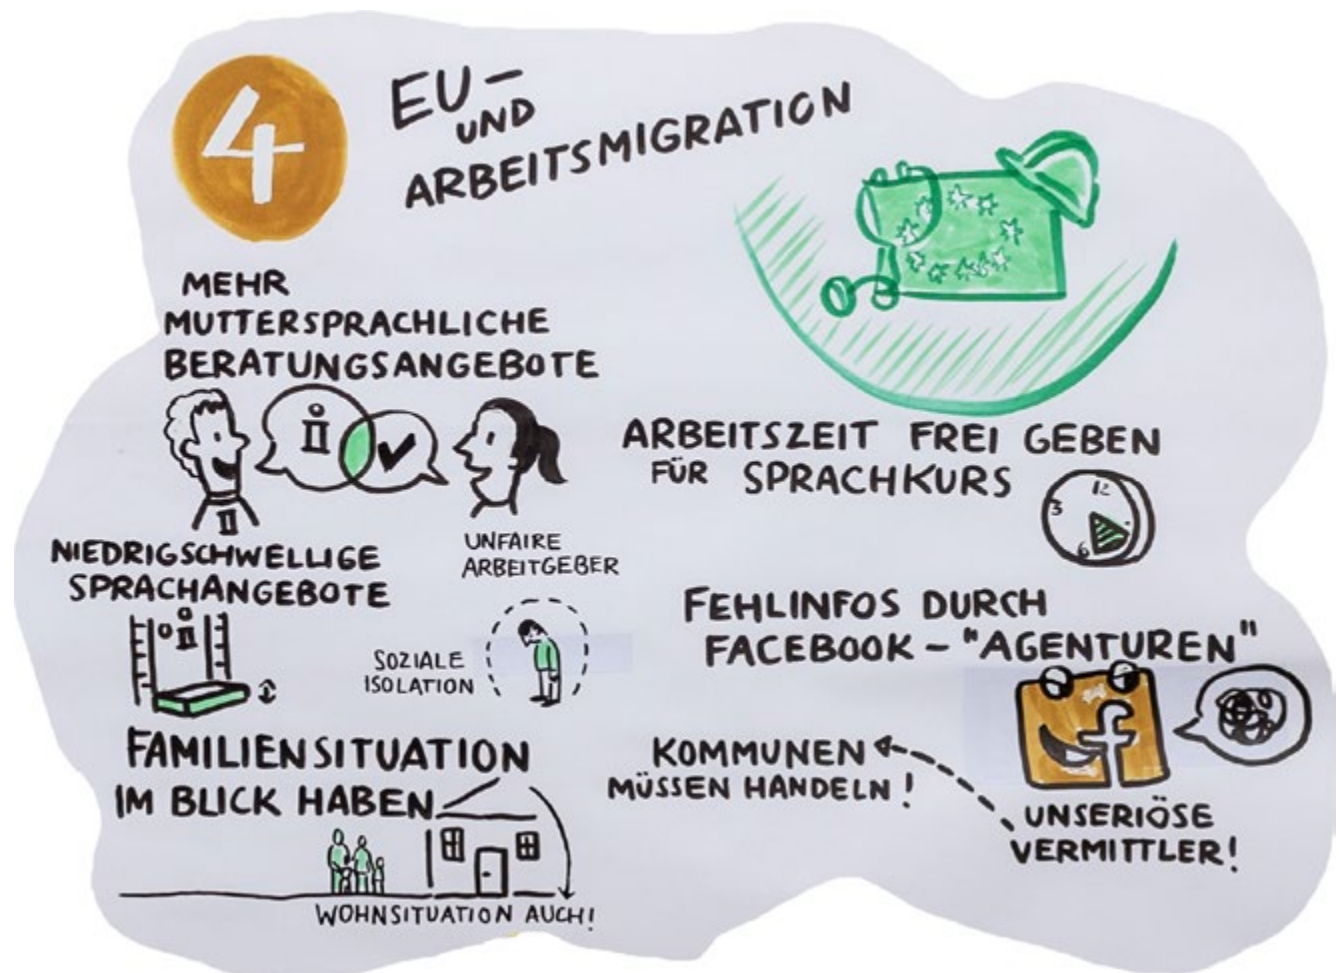 4
EU-
UND
ARBEITSMIGRATION
MEHR
MUTTERSPRACHLICHE
BERATUNGSANGEBOTE
i
NIEDRIGSCHWELLIGE
SPRACHANGEBOTE
i
UNFAIRE
ARBEITGEBER
SOZIALE
ISOLATION
FAMILIENSITUATION
IM BLICK HABEN
WOHNSITUATION AUCH!
ARBEITSZEIT FREI GEBEN
FÜR SPRACHKURS
12
3
6
FEHLINFOS DURCH
FACEBOOK - "AGENTUREN"
f
KOMMUNEN
MÜSSEN HANDELN!
UNSERIÖSE
VERMITTLER!